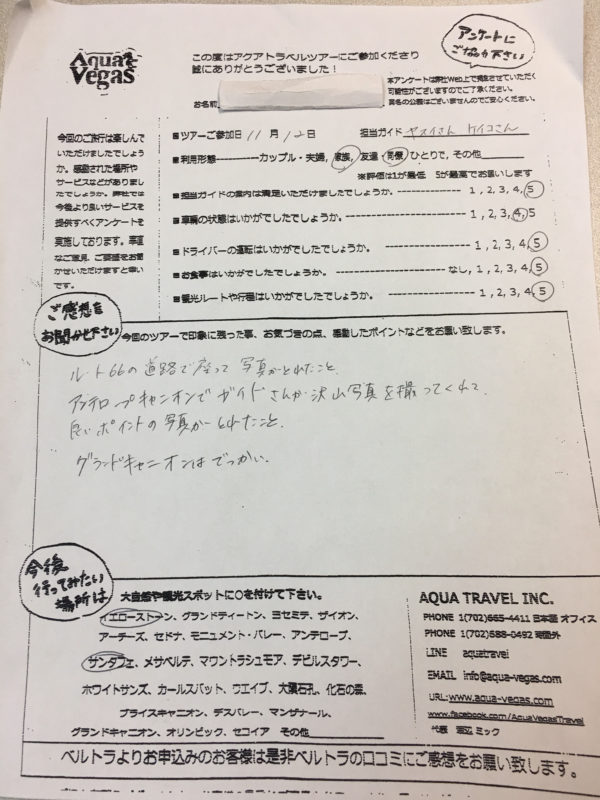 Aqua Vegas
この度はアクアトラベルツアーにご参加くださり
誠にありがとうございました！
アンケートに
ご協力下さい
本アンケートは弊社Web上で発表させていただく
可能性がございますのでご了承ください。
実名の公開はございませんのでご安心ください。
お名前
今回のご旅行は楽しんで
いただけましたでしょう
か。感動された場所や
サービスなどがありまし
たでしょうか。弊社では
今後より良いサービスを
提供すべくアンケートを
実施しております。率直
なご意見、ご要望をお聞
かせいただけますと幸い
です。
■ツアーご参加日 11月12日 担当ガイド ヤスイさん ケイコさん
■利用形態----------カップル・夫婦, 家族, 友達, 同僚, ひとりで, その他
※評価は1が最低 5が最高でお願いします
■担当ガイドの案内は満足いただけましたでしょうか。 1, 2, 3, 4, 5
■車輌の状態はいかがでしたでしょうか。 1, 2, 3, 4, 5
■ドライバーの運転はいかがでしたでしょうか。 1, 2, 3, 4, 5
■お食事はいかがでしたでしょうか。 なし, 1, 2, 3, 4, 5
■観光ルートや行程はいかがでしたでしょうか。 1, 2, 3, 4, 5
ご感想を
お聞かせ下さい
今回のツアーで印象に残った事、お気づきの点、感動したポイントなどをお願い致します。
ルート66の道路で座って写真がとれたこと、
アンテロープキャニオンでガイドさんが沢山写真を撮ってくれて
良いポイントの写真がとれたこと、
グランドキャニオンはでっかい。
今後
行ってみたい
場所は
大自然や観光スポットに○を付けて下さい。
イエローストーン、グランドティートン、ヨセミテ、ザイオン、
アーチーズ、セドナ、モニュメント・バレー、アンテロープ、
サンタフェ、メサベルデ、マウントラシュモア、デビルスタワー、
ホワイトサンズ、カールスバット、ウエイブ、大隕石孔、化石の森、
ブライスキャニオン、デスバレー、マンザナール、
グランドキャニオン、オリンピック、セコイア その他
AQUA TRAVEL INC.
PHONE 1(702)665-4411 日本語 オフィス
PHONE 1(702)688-0492 時間外
LINE aquatravel
EMAIL info@aqua-vegas.com
URL:www.aqua-vegas.com
www.facebook.com/AquaVegasTravel
代表 渡辺 ミック
ベルトラよりお申込みのお客様は是非ベルトラの口コミにご感想をお願い致します。